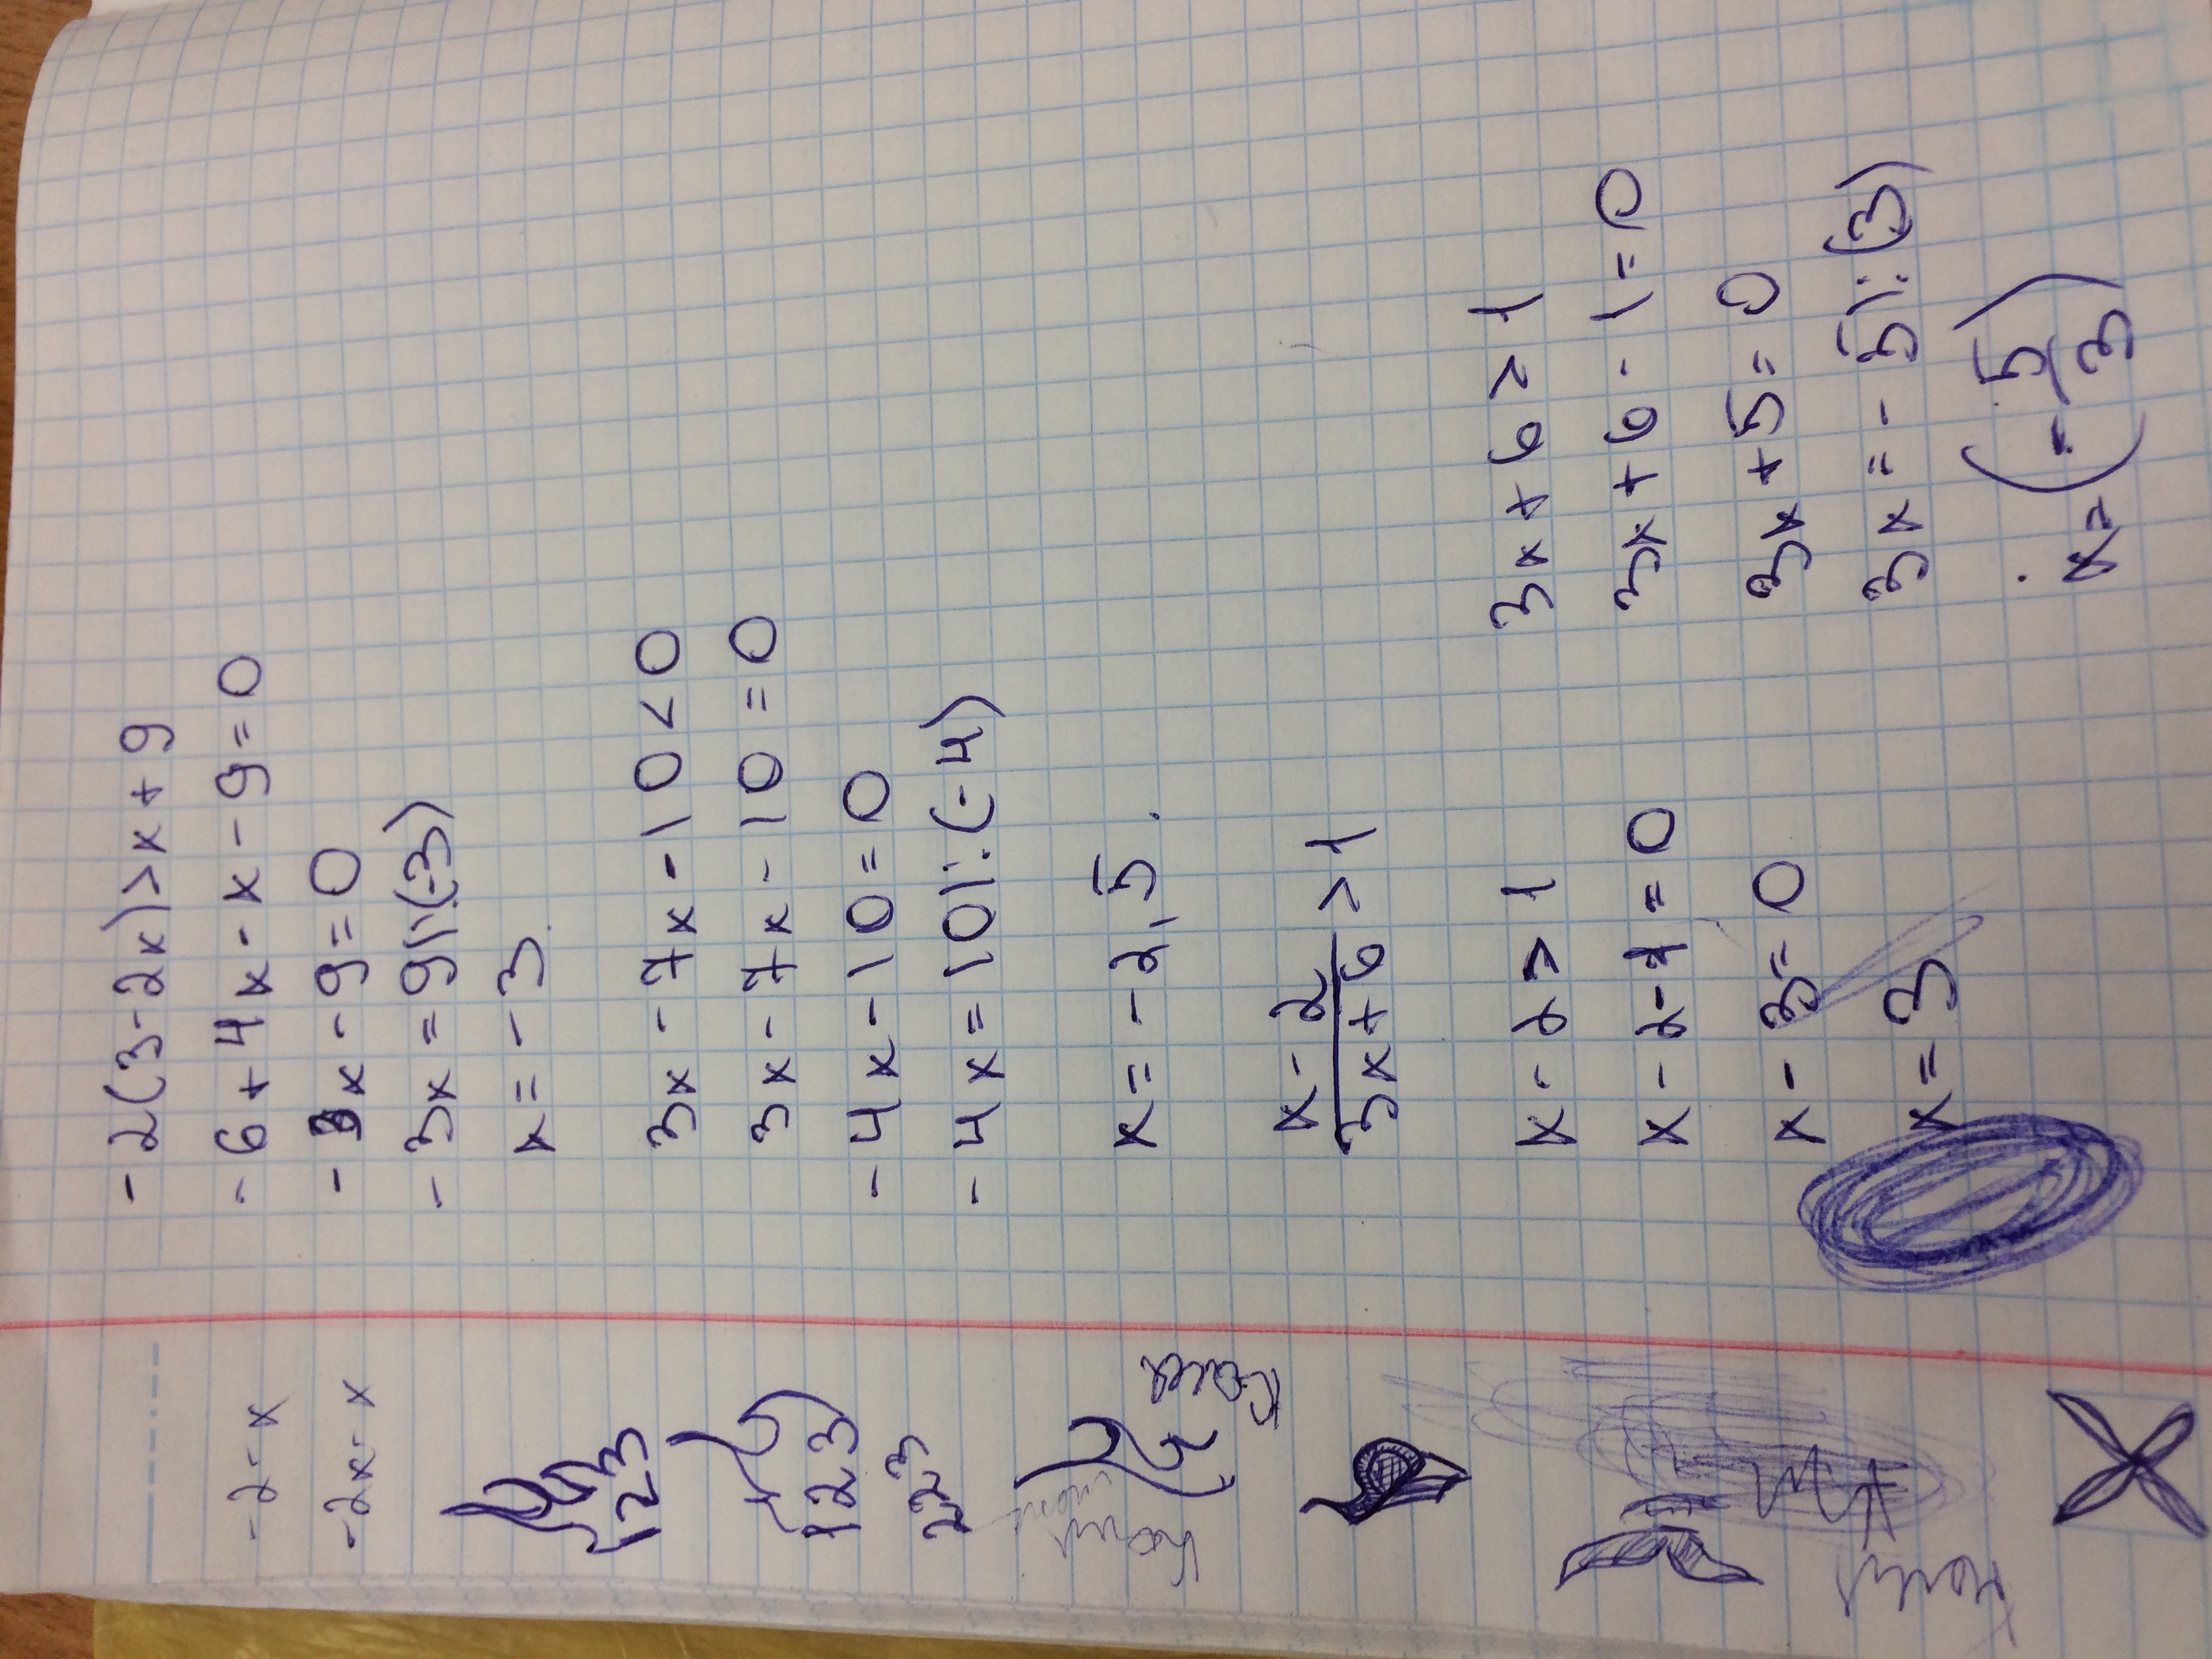 -2(3-2x)>x+9
-6+4x-x-9=0
-3x-9=0
-3x=9|:(-3)
x=-3.
3x-7x-10<0
3x-7x-10=0
-4x-10=0
-4x=10|:(-4)
x=-2,5.
x-2
3x+6 >1
x-2>1
x-2-1=0
x-3=0
x=3
3x+6>1
3x+6-1=0
3x+5=0
3x=-5|:(3)
x=(-5/3)
-2-x
-2x-x
123
123
223